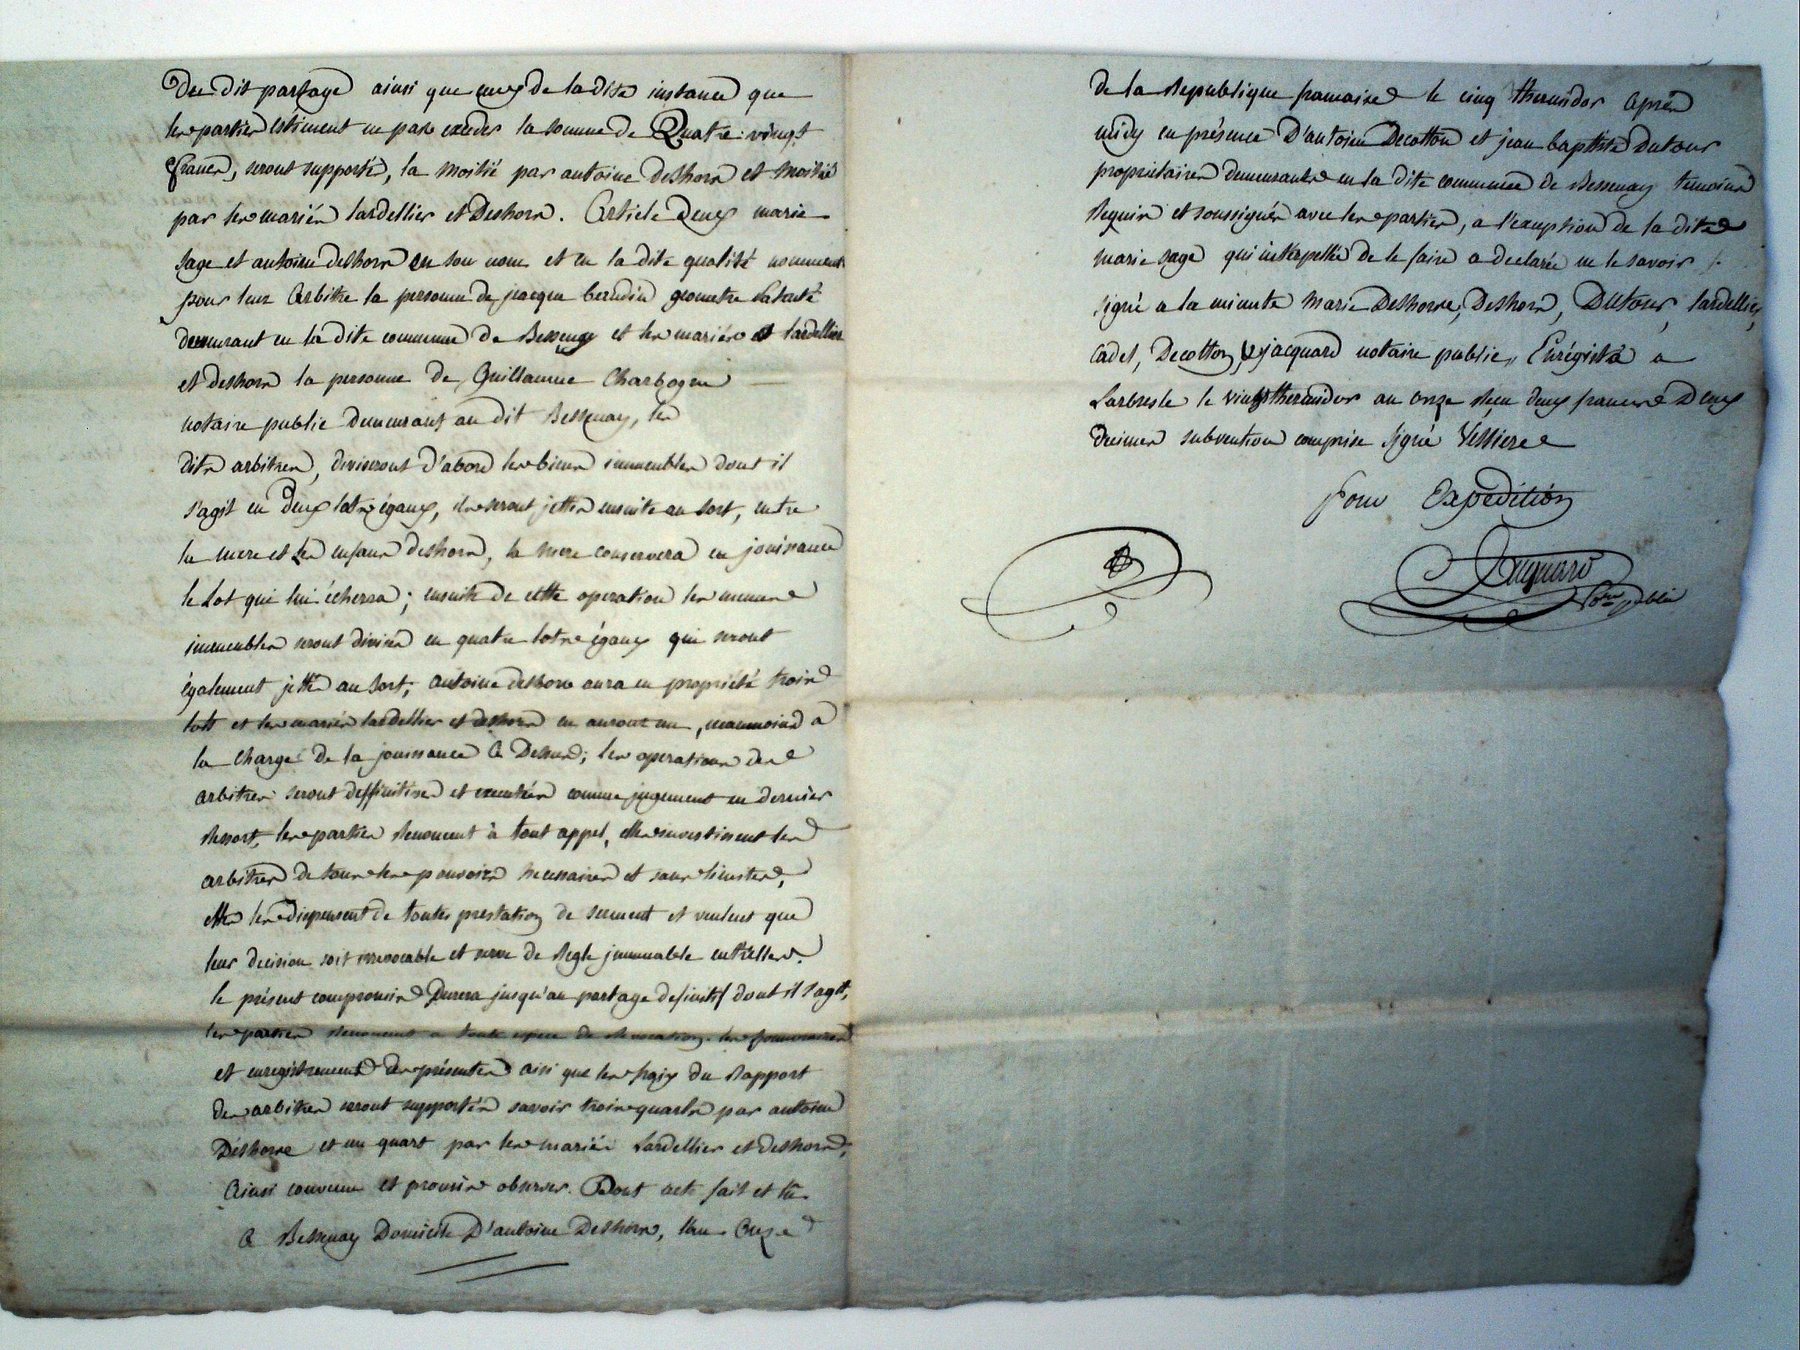 du dit partage ainsi que ceux de la dite instance que
les parties estiment ne pas exceder la somme de Quatre vingt
francs, seront supporté, la moitié par antoine deshors et moitié
par les mariés lardellier et Deshors. Article Deux marie
sage et antoine deshors en son nom et en la dite qualité nomment
pour leur Arbitre la personne de jacque berndin geometre
demeurant en la dite commune de Bessenay et les mariés lardellier
et deshors la personne de Guillaume Charbogne
notaire public demeurant au dit Bessenay, les
dits arbitres, diviseront d'abord les biens immeubles dont il
s'agit en Deux lots égaux, ils seront jettés ensuite au sort, entre
la mere et les enfans deshors, la mere conservera en jouissance
le Lot qui lui écherra ; ensuite de cette operation les memes
immeubles seront divisés en quatre lots égaux qui seront
également jettés au sort, antoine deshors aura en propriété trois
lots et les mariés lardellier et deshors en auront un, neanmoins a
la charge de la jouissance Ci Dessus ; les operations des
arbitres seront deffinitives et executées comme jugement en dernier
Ressort, les parties Renoncent à tout appel, elles investissent les
arbitres de tous les pouvoirs necessaires et sans limites,
elles les dispensent de toutes prestation de serment et veulent que
leur decision soit irrevocable et serve de Regle immuable entr'elles.
le présent compromis Durera jusqu'au partage definitif dont il s'agit,
les parties Renoncent a toute espece de Revocation. les
et enregistrement des présentes ainsi que les fraix du Rapport
des arbitres seront supportés savoir trois quarts par antoine
Deshors et un quart par les mariés Lardellier et deshors,
Ainsi convenu et promis observer. Dont acte fait et lu
a Bessenay Domicile D'antoine Deshors, l'an Onze
de la Republique francaise le cinq thermidor Après
midy en présence D'antoine Decotton et jean baptiste Dutour
proprietaires demeurants en la dite commune de Bessenay temoins
Requis et soussignés avec les parties, a l'exeption de la dite
marie sage qui interpellée de le faire a declarée ne le savoir
signé a la minute marie Deshors, Deshors, Dutour, lardellier,
Cadet, Decotton, & jacquard notaire public, Enrégistré a
Larbresle le vingt thermidor an onze Reçu deux francs Deux
decimes subvention comprise signé Vessiere
Pour Expedition
Jacquard